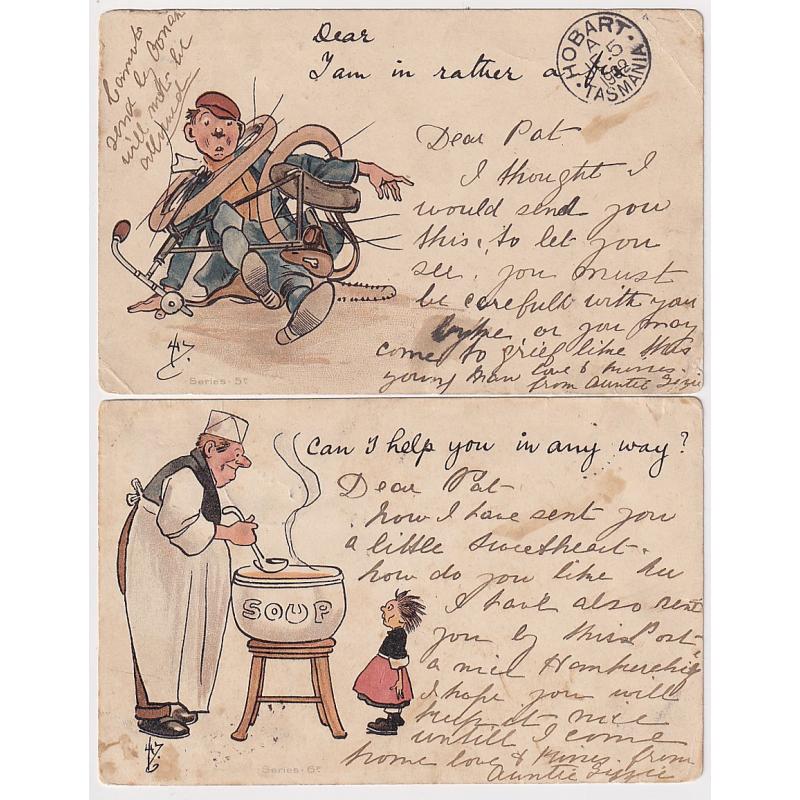 Dear
I am in rather a
HOBART
5
TASMANIA
Cannot
send by
will not be
Dear Pat
I thought I
would send you
this, to let you
see. you must
be carefull with you
or you may
come to grief like this
young man love & kisses.
from Auntie Lizzie
Series. 5c
Can I help you in any way?
Dear Pat
now I have sent you
a little sweetheart.
how do you like her
I have also sent
you by this Post
a nice Hankerchief
I hope you will
keep it nice
untill I come
home love & kisses from
Auntie Lizzie
SOUP
Series. 6c